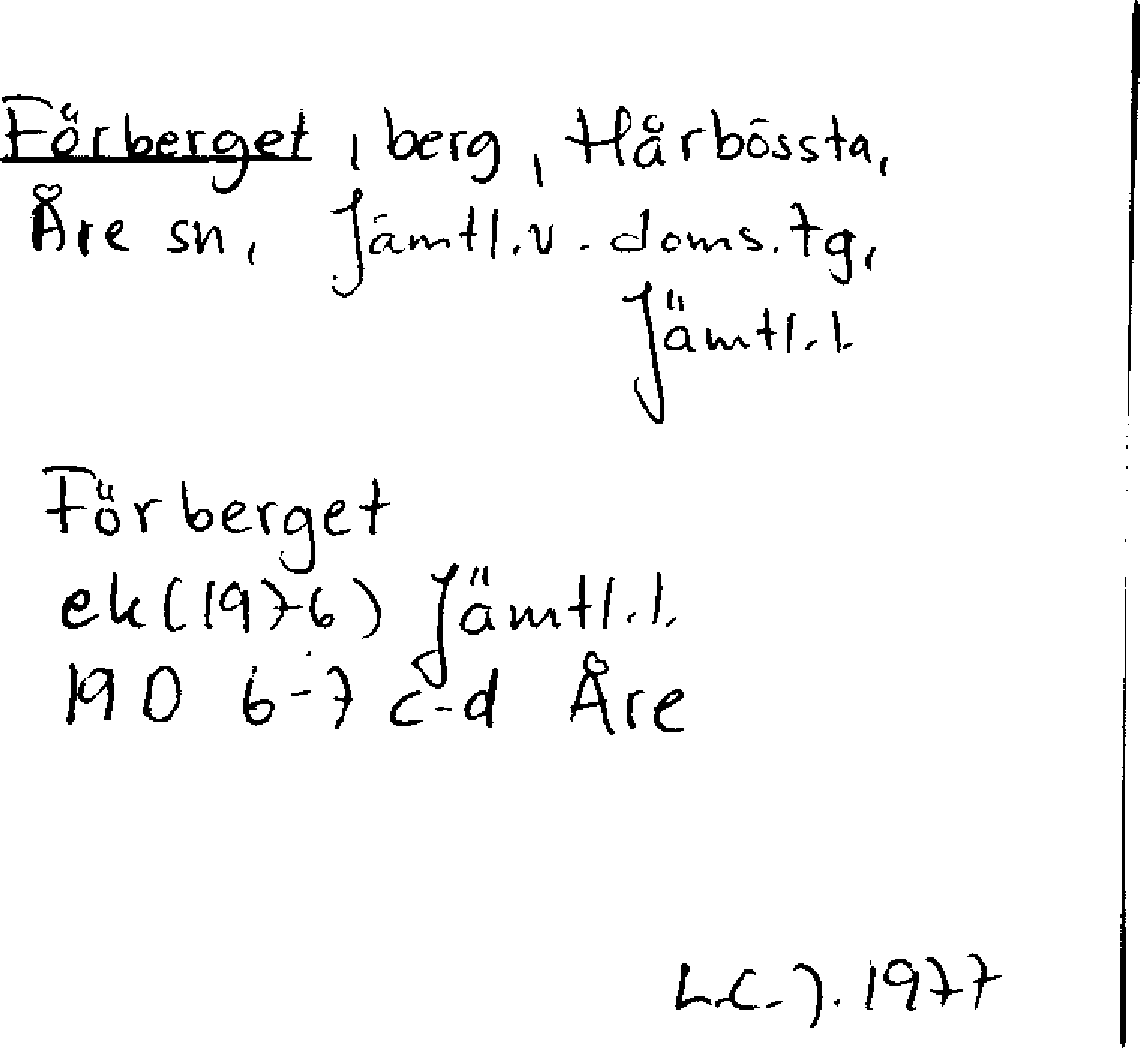 Förberget, berg, Hårbössta,
Åre sn, Jämtl.v. doms.tg,
Jämtl.l.
Förberget
ek(1976) Jämtl.l.
19D 6-7 c-d Åre
L.C.J. 1977